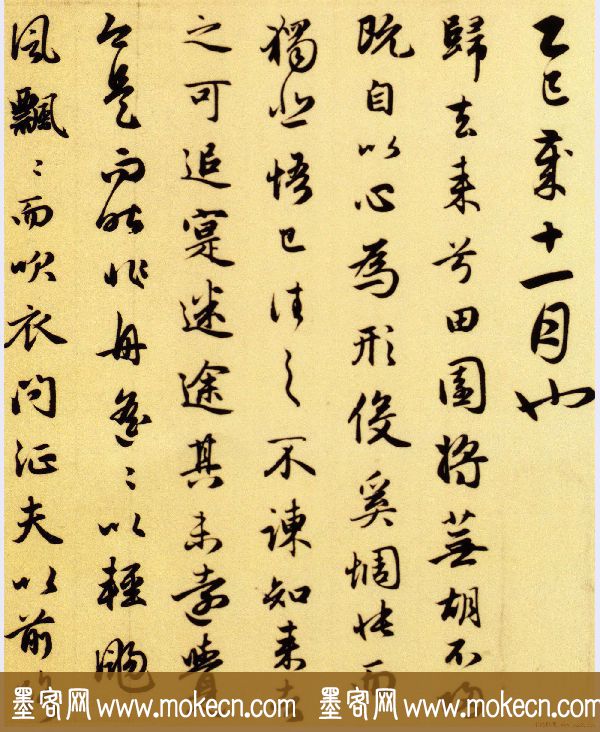 乙巳歲十一月也
歸去来兮田園將蕪胡不歸
既自以心為形役奚惆悵而
獨悲悟已往之不諫知来者
之可追寔迷途其未遠覺
今是而昨非舟遥〻以輕颺
風飄〻而吹衣問征夫以前路
墨客网 www.mokecn.com 墨客网 www.mokecn.com